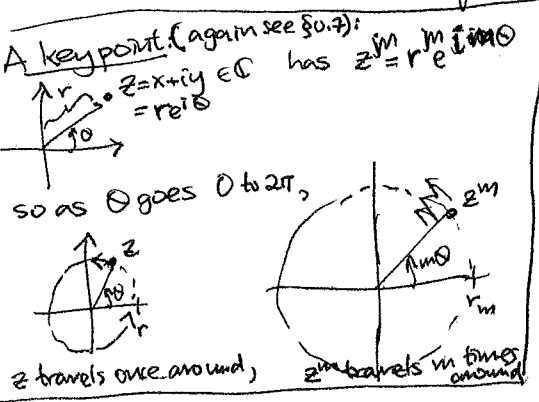 A key point. (again see §0.7):
z=x+iy ∈ ℂ has z^m = r^m e^{imθ}
= re^{iθ}
r
θ
so as θ goes 0 to 2π,
z
θ
r
z^m
mθ
r^m
z travels once around, z^m travels m times around